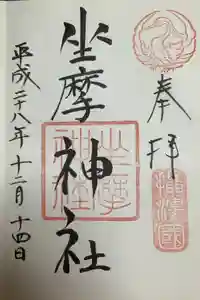 奉拝
坐摩神社
平成二十八年十二月十四日
摂津國
坐摩神社